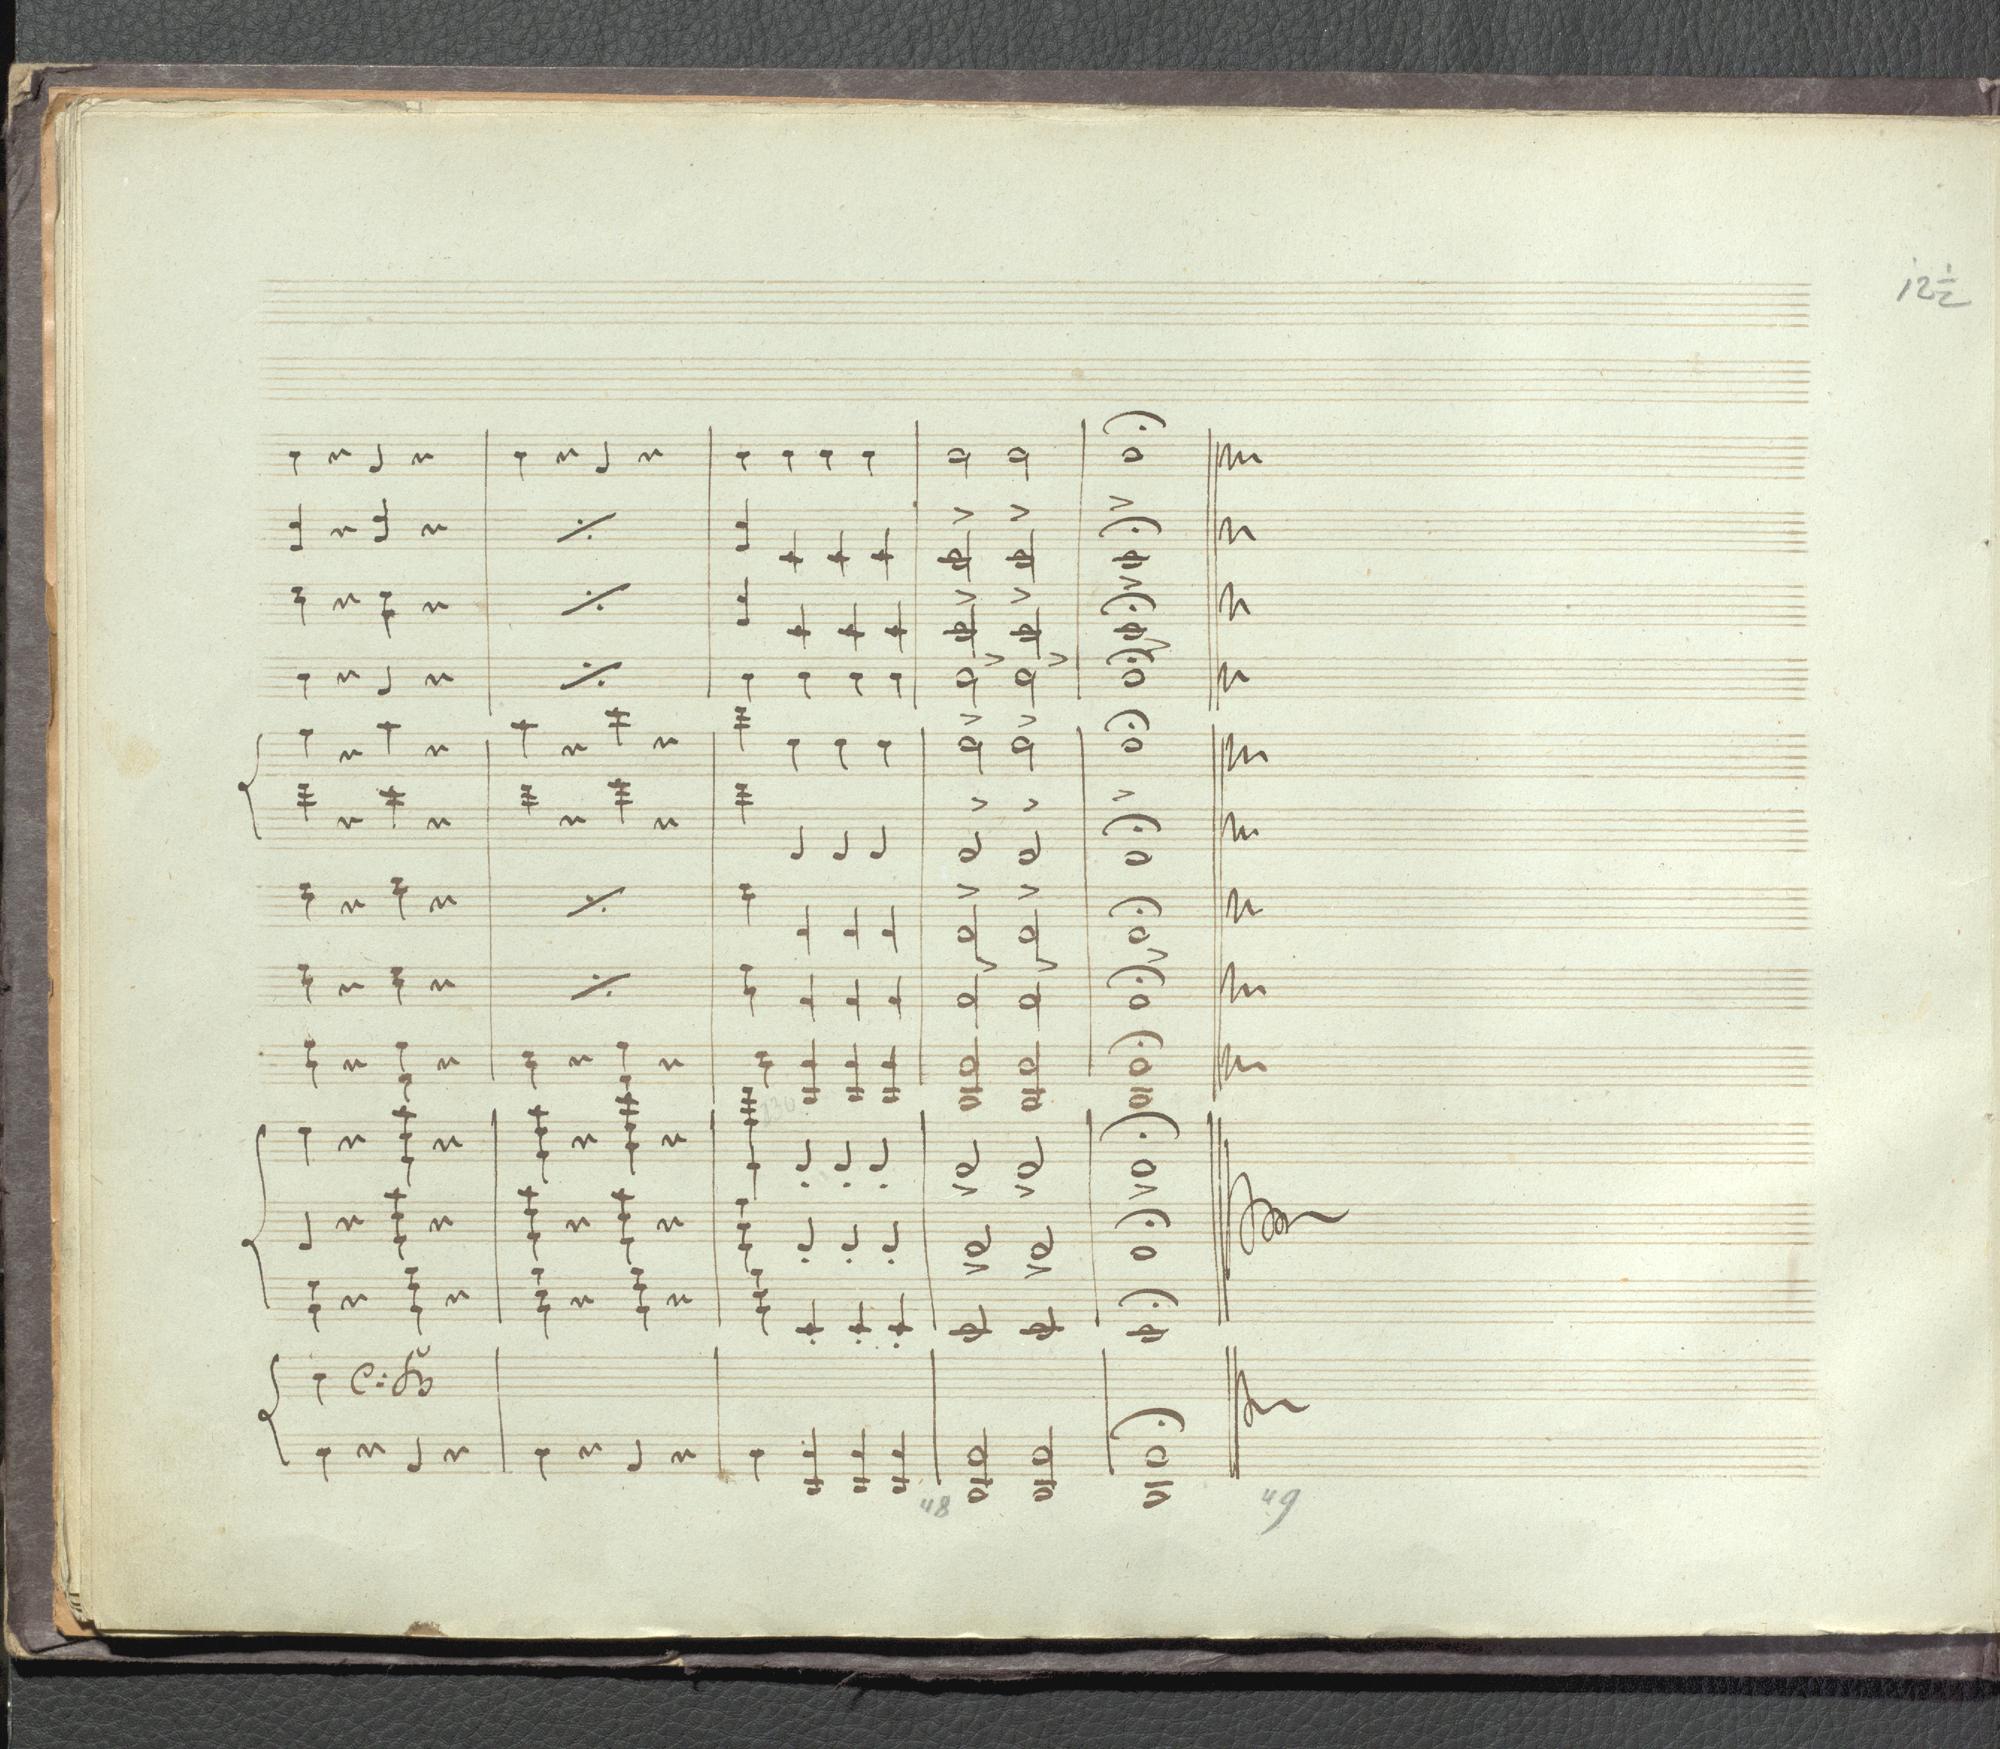 12½
230
C: B
48
49